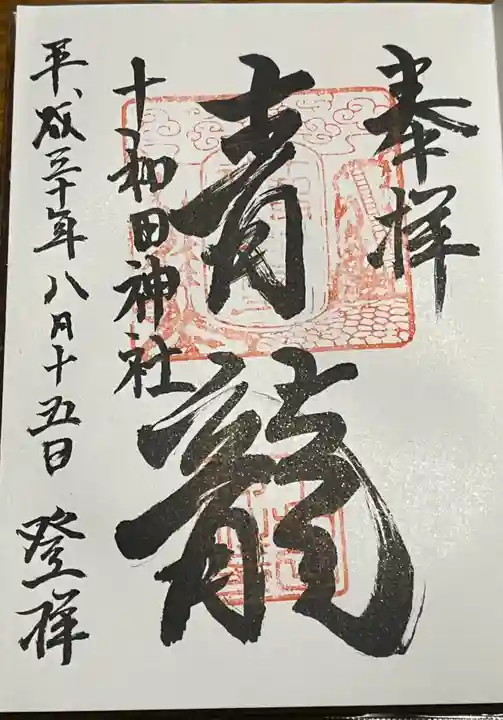 奉拝
青龍
十和田神社
平成三十年八月十五日 登拝